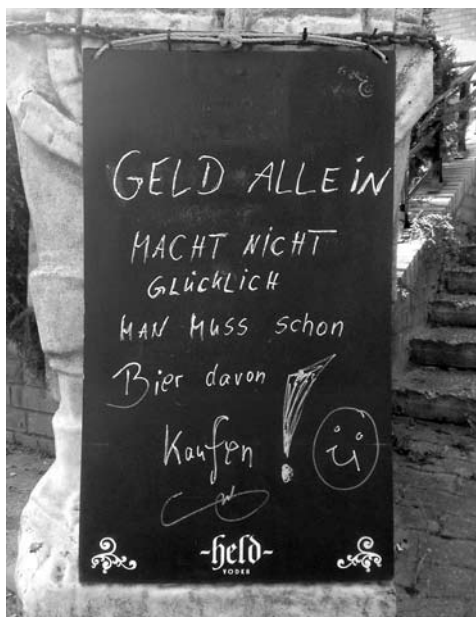 GELD ALLEIN
MACHT NICHT
GLÜCKLICH
MAN MUSS schon
Bier davon
Kaufen !
-held-
VODKA